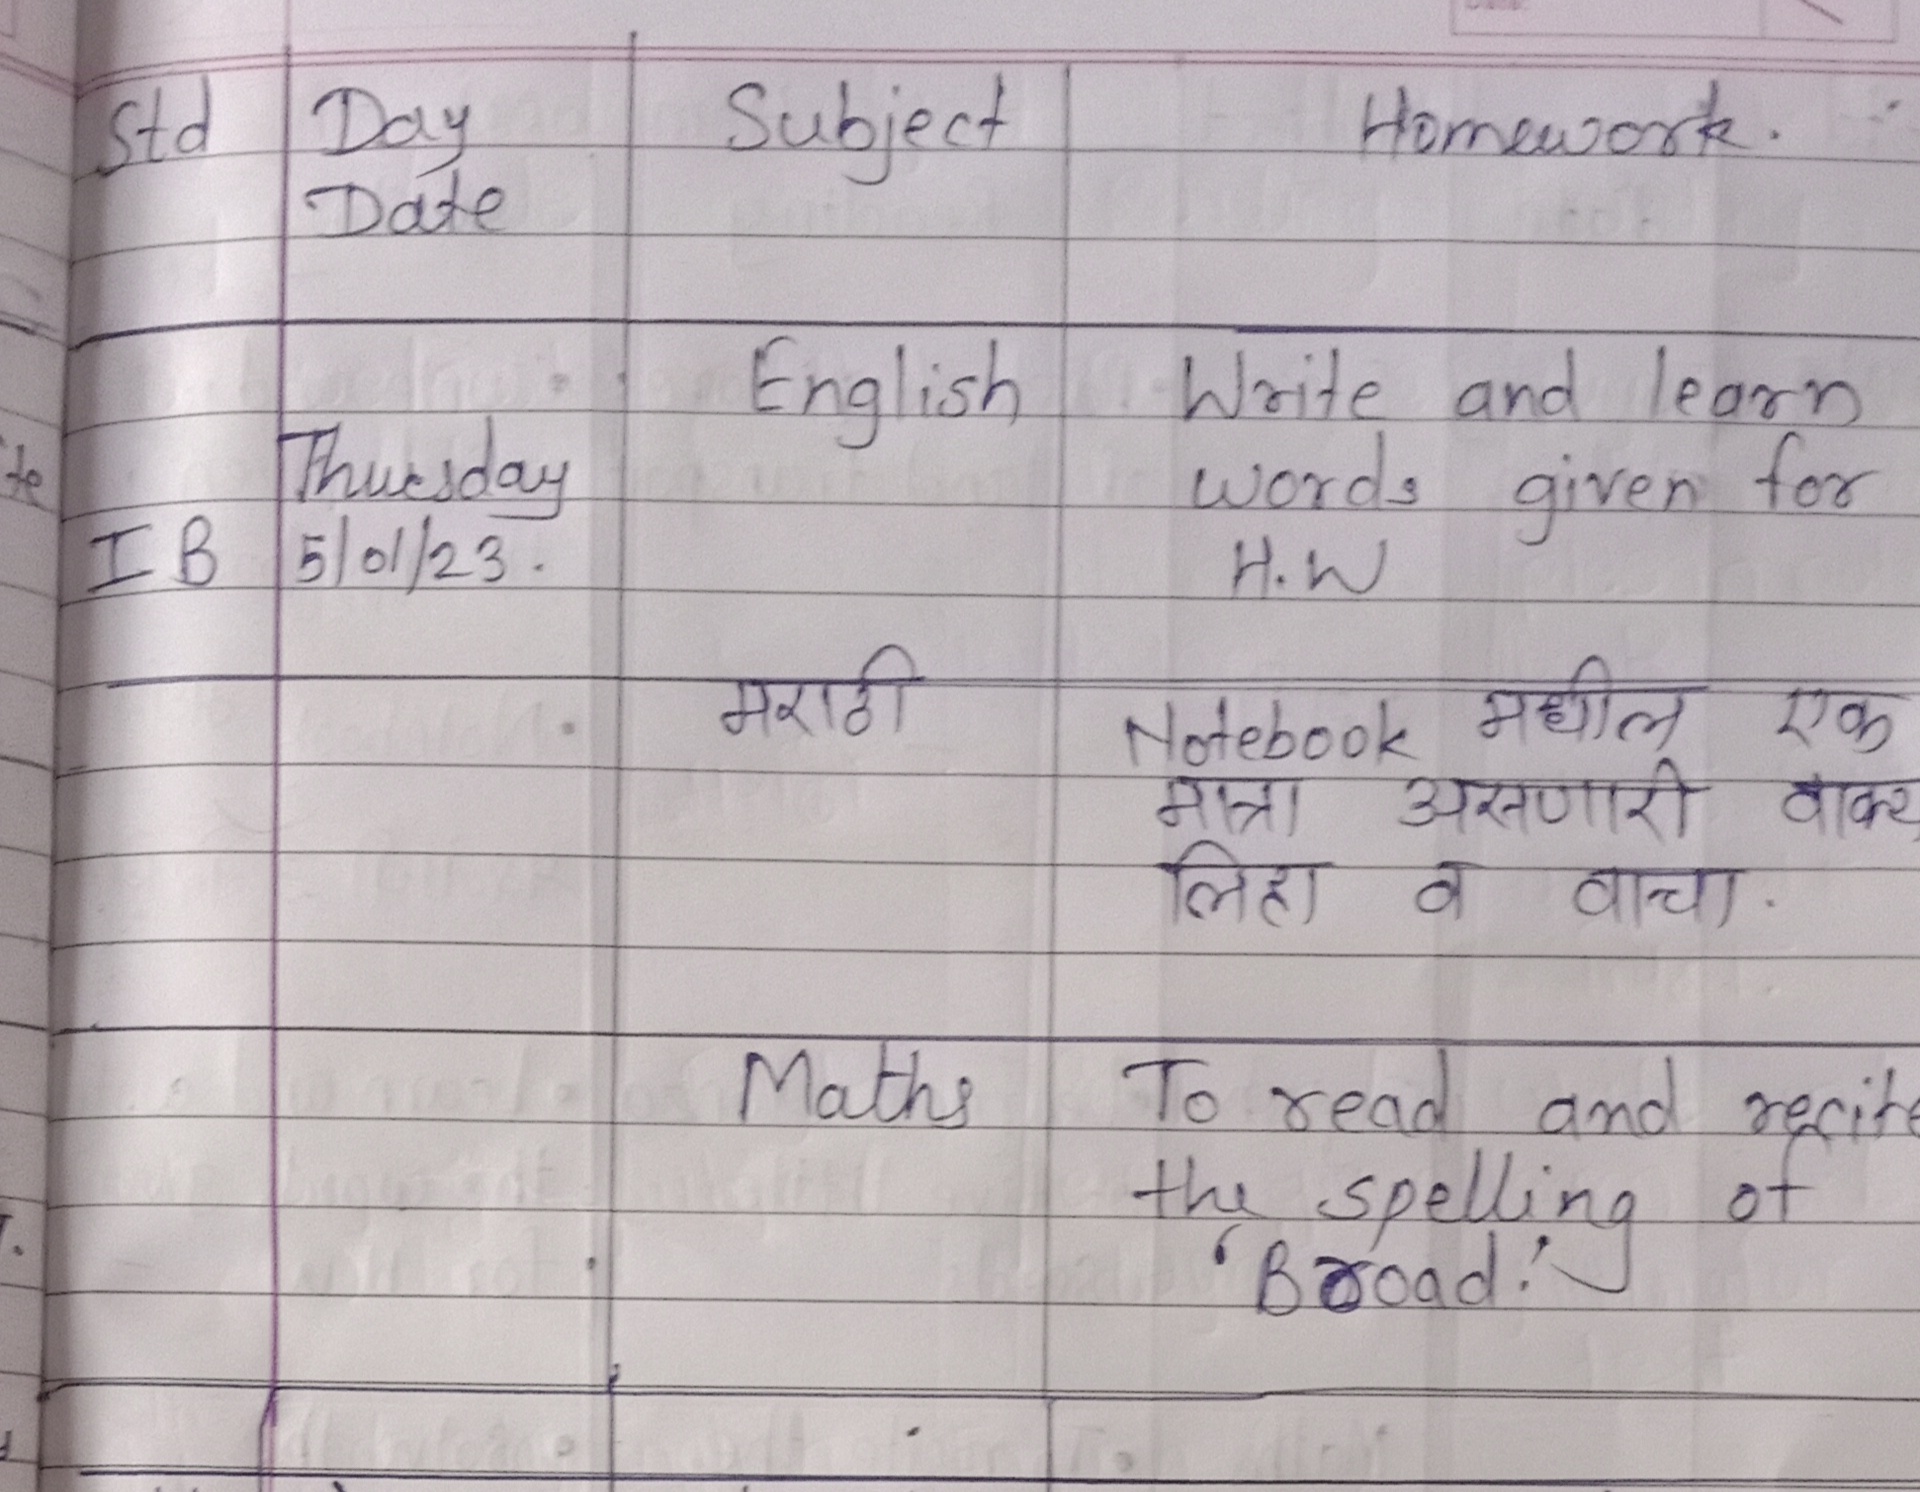 Std Day Subject Homework.
Date
English Write and learn
Thursday words given for
I B 5/01/23. H.W
मराठी Notebook मधील एक
मात्रा असणारी वाक्य
लिहा व वाचा.
Maths To read and recite
the spelling of
'Broad.'